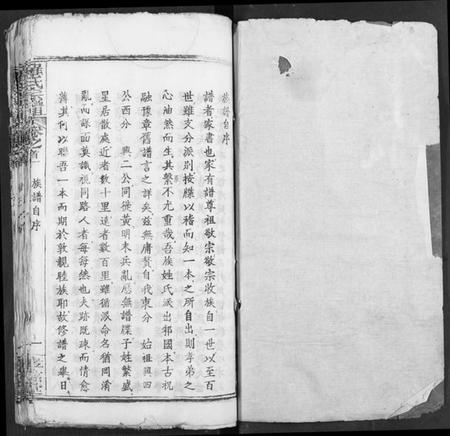 族譜自序
譜者家書也家有譜尊祖敬宗敬宗收族自一世以至百
世雖支分派別按牒以稽而知一本之所自出則孝弟之
心油然而生其繫不尤重哉吾族姓氏派出祁國本古祝
融豫章舊譜言之詳矣茲無庸贅自我東分 始祖興四
公西分 興二公同徙黃明末兵亂悉無譜牒子姓繁盛
星居散處近者數十里遠者數百里雖循派命名猶同淆
亂而疎面莫識視同路人者每每然也夫跡既疎而情愈
薄其何以聯吾一本而期於敦親睦族耶故修譜之舉日
氏
卷之首
族譜自序
一